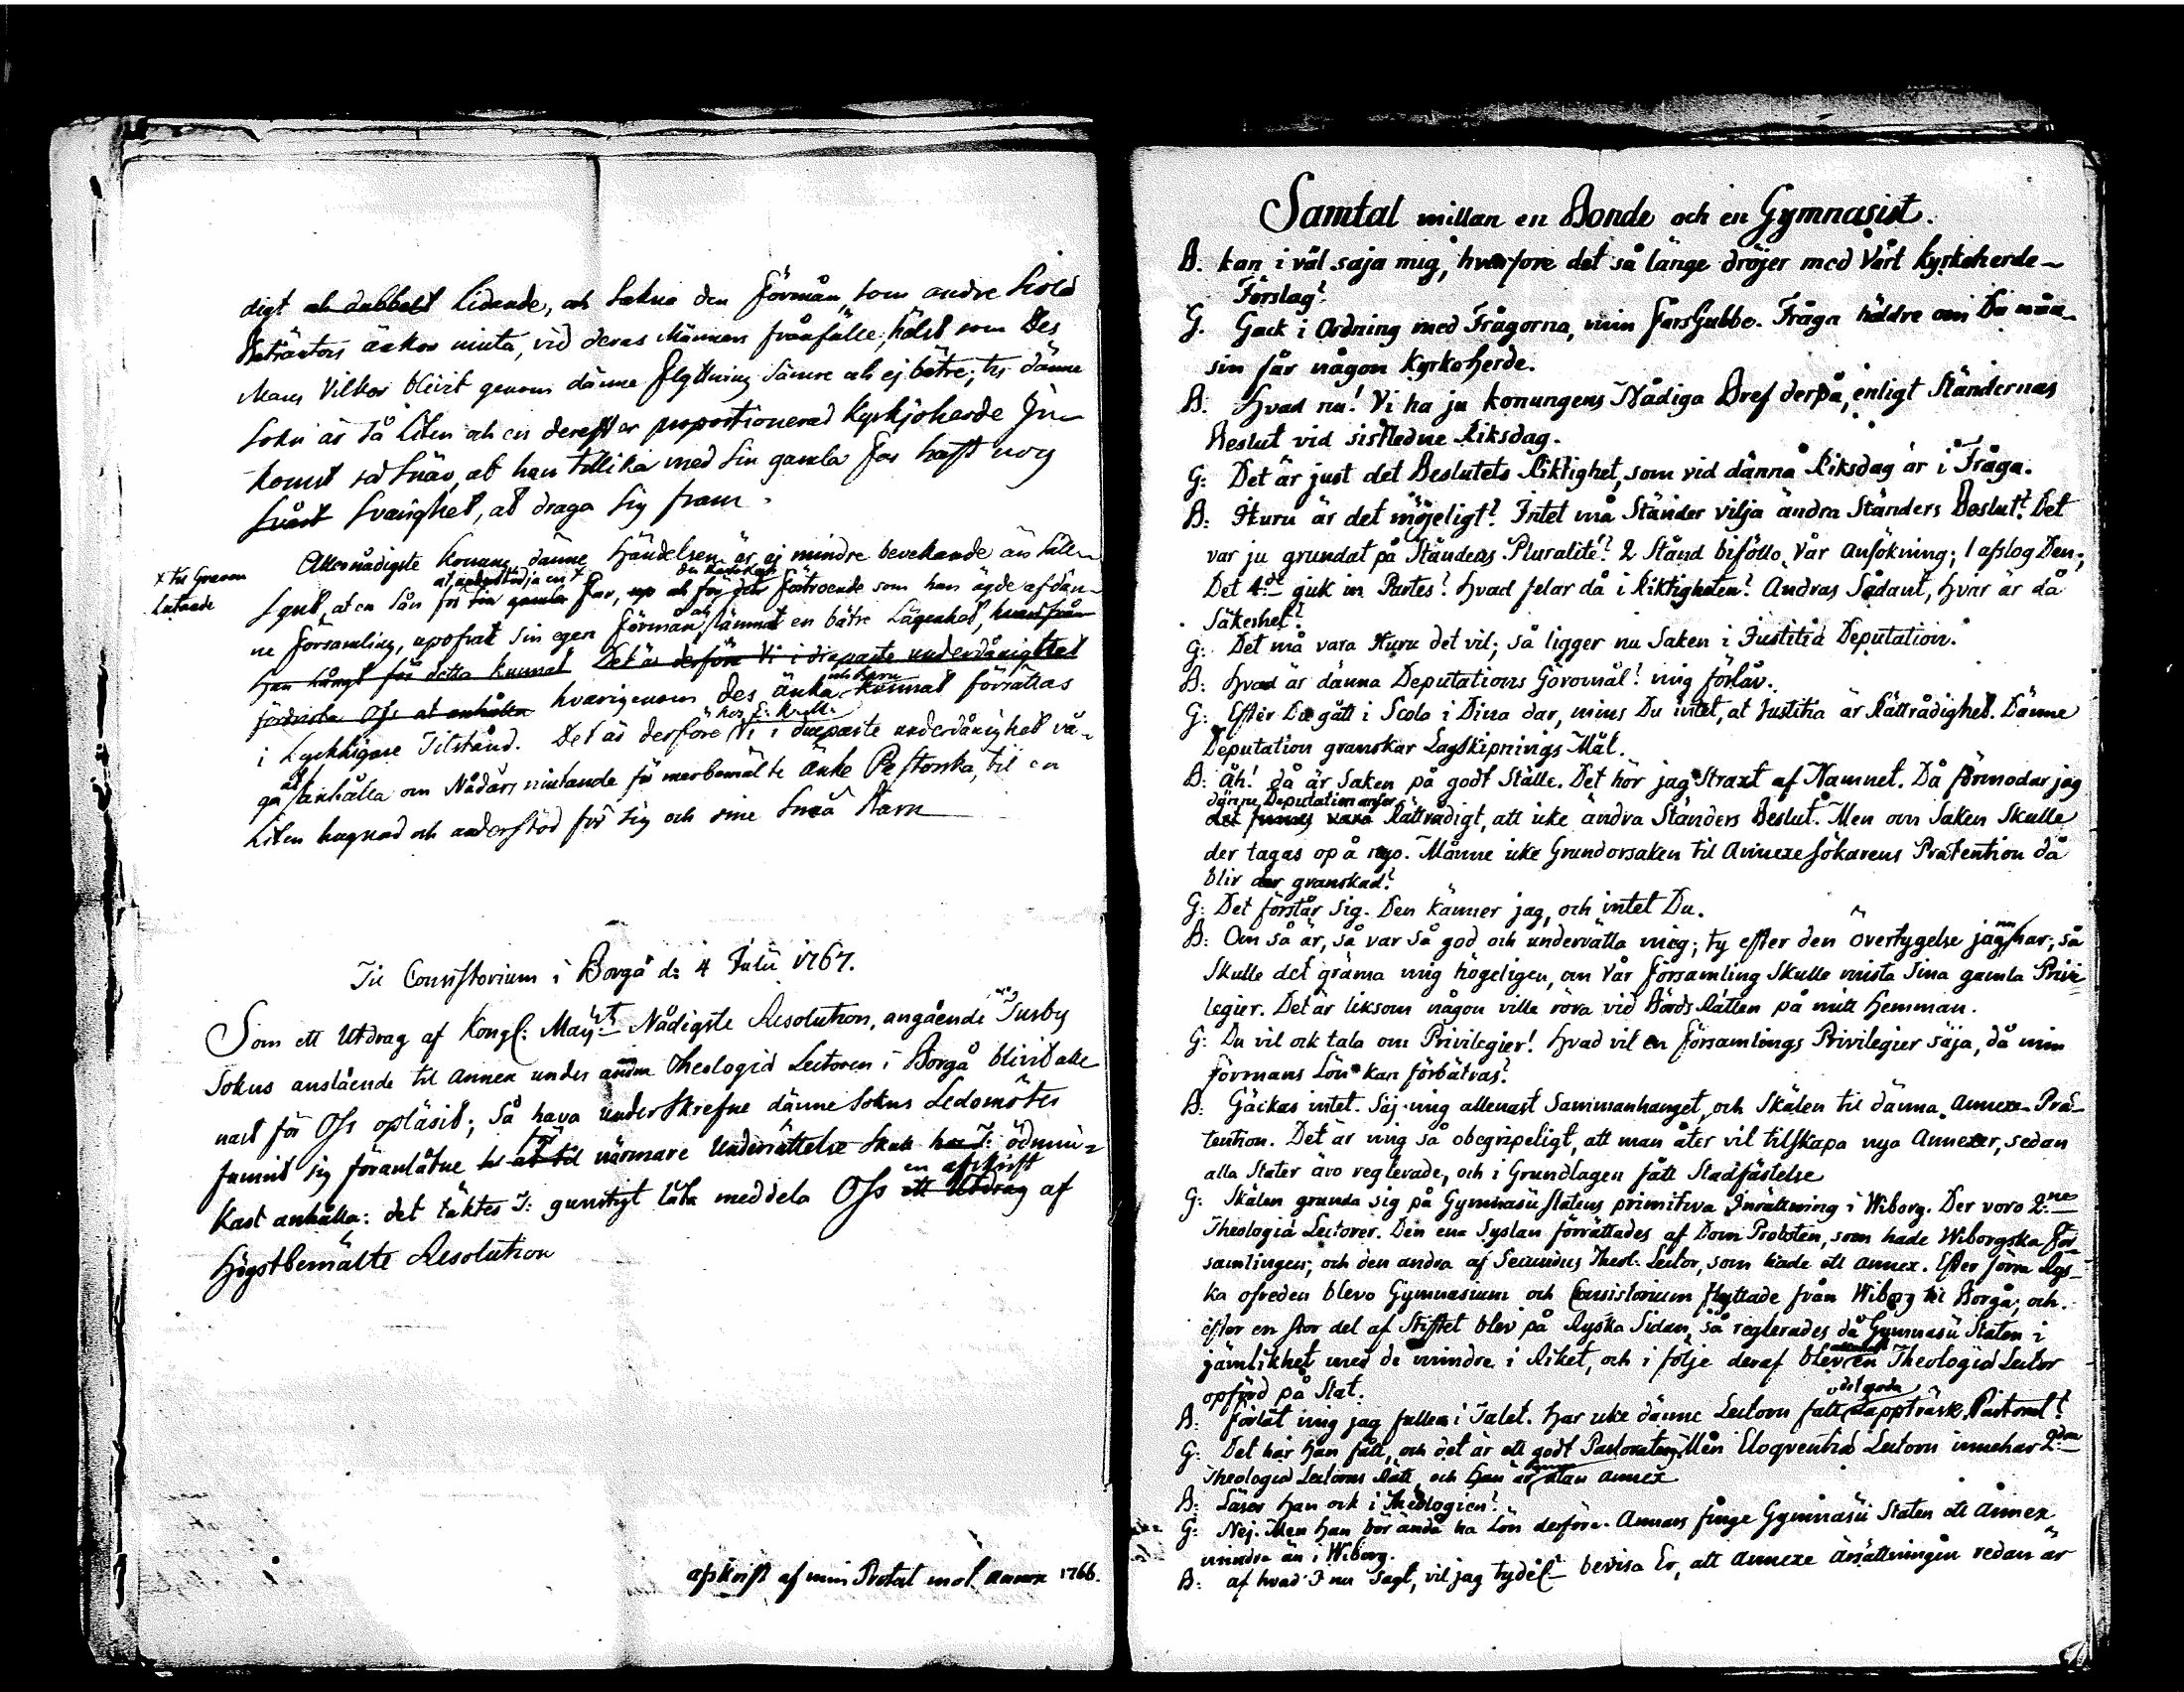 digt och dubbelt Lidande, och Sakna den Förmån, som andre Siola
Beträntors änkor niuta, vid deras Männers frånfälle; hälst som Des
Mans Vilkor blivit genom dänne flyttning Sämre och ej bätre; ty dänne
Sokn är så Liten och en derefter proportionerad Kyrkjoherde In-
komst så Snäv, at han tillika med Sin gamla Far haft nog
Svårt Svårighet, at draga Sig fram.
Allernådigste Konung, dänne Händelsen är ej mindre bevekande än Säll-
x til Graven
Lutande
at understödja en x
den kärlek och
Synt, at en Sån för Sin gamla Far, up och för det förtroende som han ägde af dän-
och
ne Församling, upofrat Sin egen Förmån lämnat en bätre Lägenhet, hvarifrån
Han långt för detta kunnat Det är derföre Vi i djupaste underdånighet
och Barn
fördrista Oss at anhålla hvarigenom des änka kunnat försättas
hos E: K: M:
i Lyckligare Tilstånd. Det är derföre Vi i diupaste underdånighet vå-
at
ga anhålla om Nådårs niutande för merbemälte änke Pastorska, til en
Liten hugnad och understöd för Sig och sine Små Barn
Til Consistorium i Borgå d: 4 Julii 1767.
Som ett Utdrag af Kongl: Maij:ts Nådigste Resolution, angående Tusby
Sokns anslående til Annex under andra Theologiæ Lectoren i Borgå blivit alle
nast för Oss opläsit; Så hava underskrefne dänne Sokns Ledamöter
för
funnit sig föranlåtne til at til närmare Underrättelse Skull hos I: ödmiu-
en afskrift
kast anhålla: det täktes I: gunstigt låta meddela Oss ett Utdrag af
Högstbemälte Resolution
afskrift af min Protest mot annex 1766.
Samtal millan en Bonde och en Gymnasist.
B. kan i väl säja mig, hvarfore det så länge dröjer med Vårt kyrkoherde-
Förslag?
G. Gack i Ordning med Frågorna, min FarsGubbe. Fråga häldre om Du nån-
sin får någon KyrkoHerde.
B. Hvad nu! Vi ha ju konungens Nådiga Bref derpå, enligt Ständernas
Beslut vid sistledne Riksdag.
G: Det är just det Beslutets Riktighet, som vid dänna Riksdag är i Fråga.
B: Huru är det möjeligt? Intet må Ständer vilja ändra Ständers Beslut? Det
var ju grundat på Ståndens Pluralité? 2 Stånd biföllo Vår ansökning; 1 afslog Den;
Det 4:de gick in Partes? Hvad felar då i Riktigheten? Andras Sådant, hvar är då
Säkerhet?
G: Det må vara Huru det vil; så ligger nu Saken i Justitiæ Deputation.
B: Hvad är dänna Deputations Göromål? mig förlåv.
G: Efter Du gått i Scola i Dina dar, mins Du intet, at Justitia är Rättrådighet. Dänne
Deputation granskar Lagskipnings Mål.
B: åh! då är Saken på godt Ställe. Det hör jag Straxt af Namnet. Då förmodar jag
dänne Deputation anser
det finnes vara Rättrådigt, att icke ändra Ständers Beslut. Men om Saken Skulle
der tagas op å nyo. Månne icke Grundorsaken til Annexe sökarens Prætention då
blir der granskad?
G: Det förstår Sig. Den känner jag, och intet Du.
nu
B: Om så är, så var så god och undervätta mig; ty efter den övertygelse jag har, så
Skulle det gräma mig högeligen, om Vår Församling Skulle mista Sina gamla Privi-
legier. Det är liksom någon ville röra vid Börds Rätten på mitt Hemman.
G: Du vil ock tala om Privilegier! Hvad vil en Församlings Privilegier säja, då min
Förmans Lön kan förbätras?
B: Gäckas intet. Säj mig allenast Sammanhanget, och Skälen til dänna Annexe-Præ-
tention. Det är mig så obegripeligt, att man åter vil tilskapa nya Annexer, sedan
alla Stater äro reglerade, och i Grundlagen fått Stadfästelse
G: Skälen grunda sig på Gymnasii Statens primitiva Inrättning i Wiborg. Der voro 2:ne
Theologiæ Lectorer. Den ena Syslan förrättades af Dom Probsten, som hade Wiborgska För
samlingen; och den andra af Secundus Theol: Lector, som hade ett annex. Efter förra Rys-
ka ofreden blevo Gymnasium och Consistorium flyttade från Wiborg til Borgå; och
efter en stor del af Stiftet blev på Ryska Sidan, så reglerades då Gymnasii Staten i
jämlikhet med de mindre i Riket, och i följe deraf blev en Theologiæ Lector
opförd på Stat.
det goda
B: Förlåt mig jag faller i Talet. Har icke dänne Lectorn fått Lappträsk Pastorat?
G: Det har Han fått, och det är ett godt Pastorat. Men Eloqventiæ Lectorn innehar 2:dra
Theologiæ Lectorns Rätt, och Han är utan annex
B: Läser Han ock i Theologien?
G: Nej. Men Han bör ändå ha Lön derföre. Annars finge Gymnasii Staten ett Annex
mindre än i Wiborg.
B: af hvad I nu Sagt, vil jag tydel. bevisa Er, att Annexe ärsättningen redan är